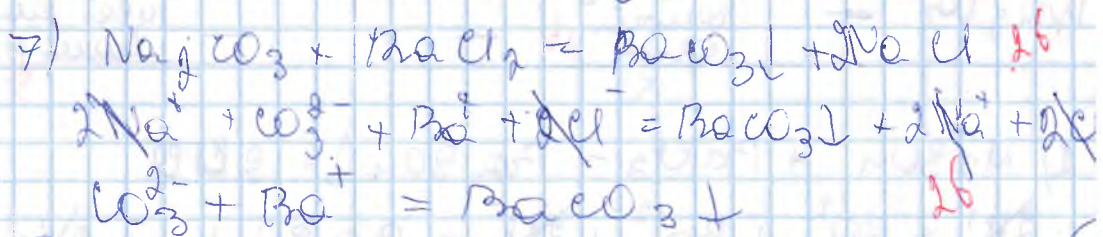 7) Na₂CO₃ + BaCl₂ = BaCO₃↓ + 2NaCl 2б
2Na⁺ + CO₃²⁻ + Ba⁺ + 2Cl⁻ = BaCO₃↓ + 2Na⁺ + 2C
CO₃²⁻ + Ba⁺ = BaCO₃↓ 2б